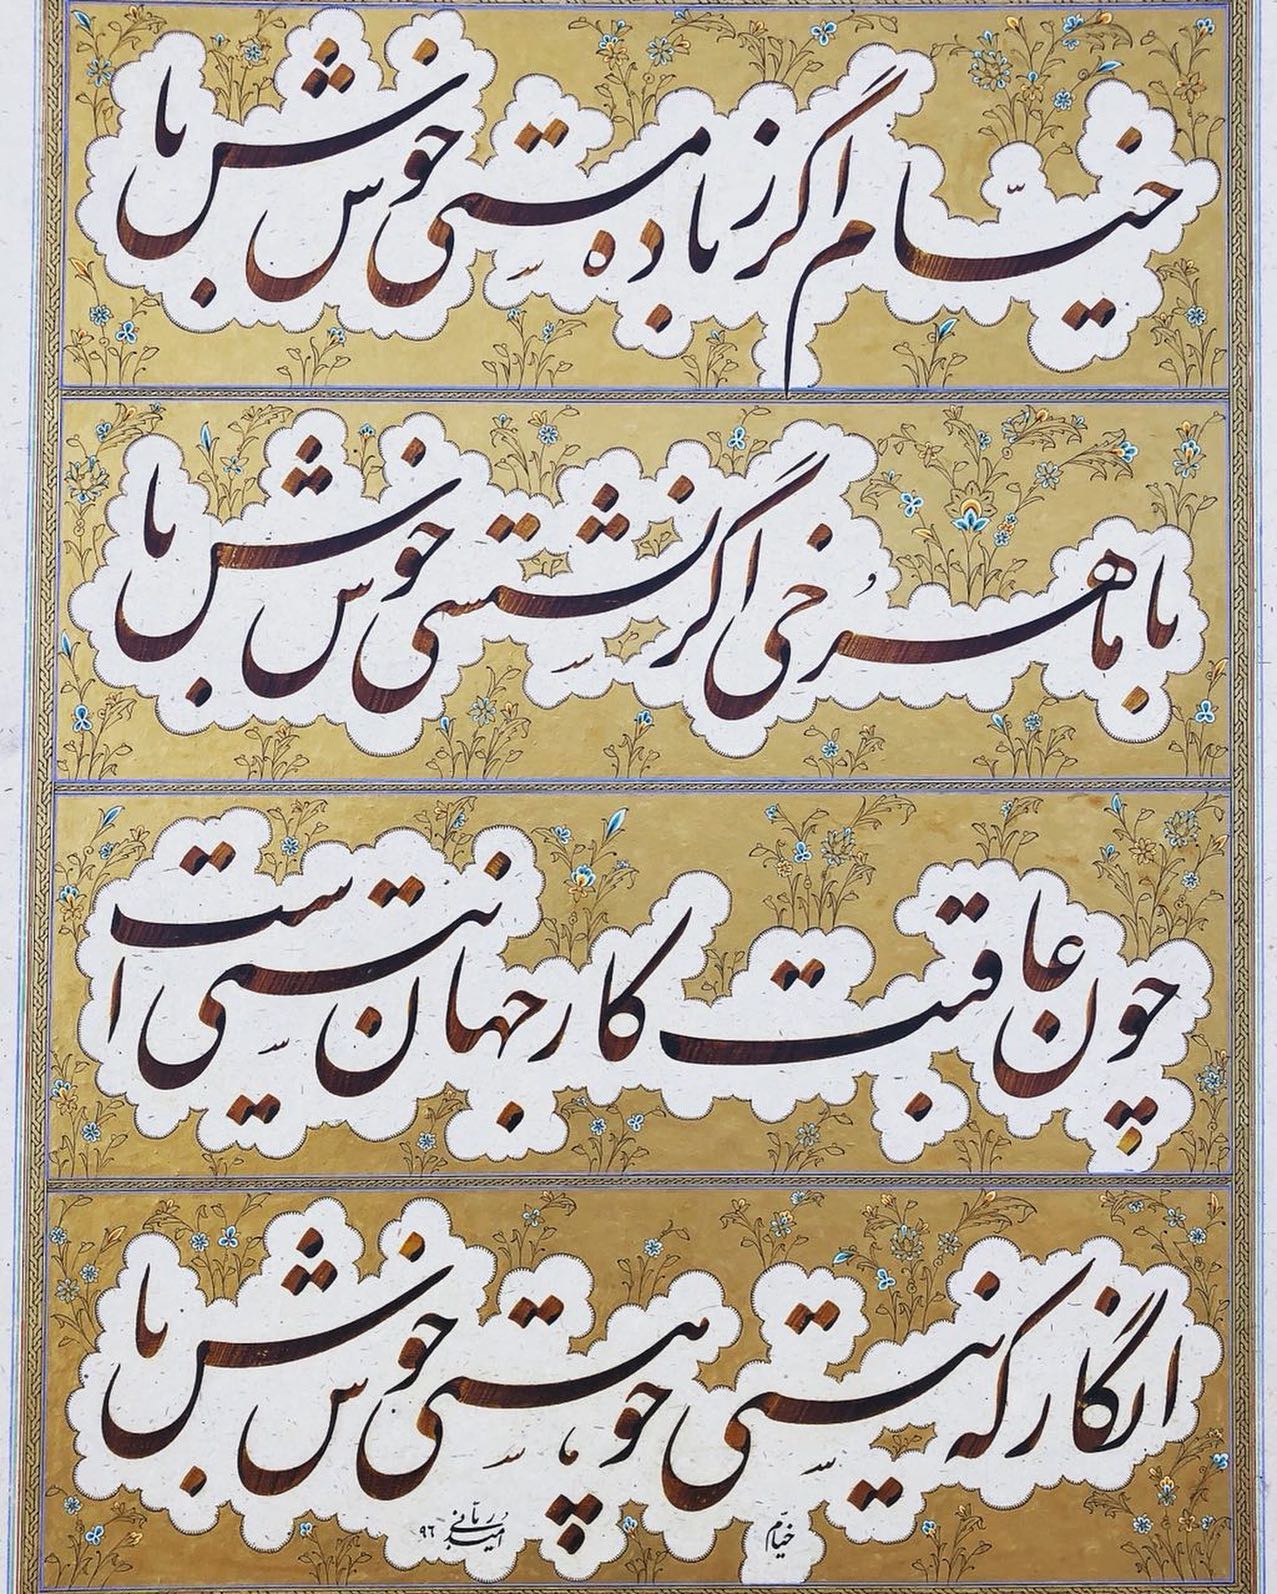 خیّام اگر ز باده مستی خوش باش
با ماهرخی اگر نشستی خوش باش
چون عاقبت کار جهان نیستی است
انگار که نیستی چو هستی خوش باش
خیّام
امید ربّانی ۹۶